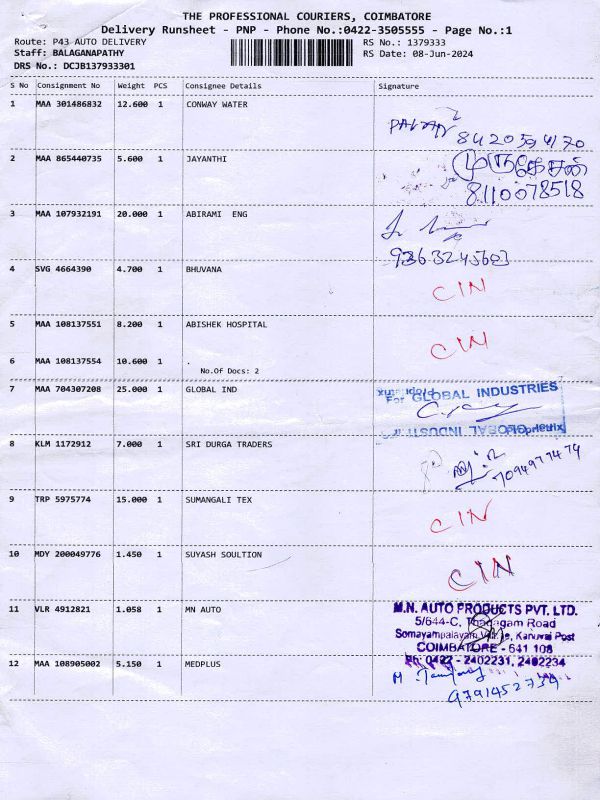 THE PROFESSIONAL COURIERS, COIMBATORE
Delivery Runsheet - PNP - Phone No.:0422-3505555 - Page No.:1
Route: P43 AUTO DELIVERY
RS No.: 1379333
Staff: BALAGANAPATHY
RS Date: 08-Jun-2024
DRS No.: DCJB137933301
S No Consignment No Weight PCS Consignee Details Signature
1 MAA 301486832 12.600 1 CONWAY WATER
8420594170
2 MAA 865440735 5.600 1 JAYANTHI
முருகேசன்
8110078518
3 MAA 107932191 20.000 1 ABIRAMI ENG
9363245603
4 SVG 4664390 4.700 1 BHUVANA
CIN
5 MAA 108137551 8.200 1 ABISHEK HOSPITAL
CIN
6 MAA 108137554 10.600 1
No.Of Docs: 2
7 MAA 704307208 25.000 1 GLOBAL IND
For GLOBAL INDUSTRIES
8 KLM 1172912 7.000 1 SRI DURGA TRADERS
7094977474
9 TRP 5975774 15.000 1 SUMANGALI TEX
CIN
10 MDY 200049776 1.450 1 SUYASH SOULTION
CIN
11 VLR 4912821 1.058 1 MN AUTO
M.N. AUTO PRODUCTS PVT. LTD.
5/644-C, Thadagam Road
Somayampalayam Village, Kanuvai Post
COIMBATORE - 641 108
Ph: 0422 - 2402231, 2402234
12 MAA 108905002 5.150 1 MEDPLUS
9791452734